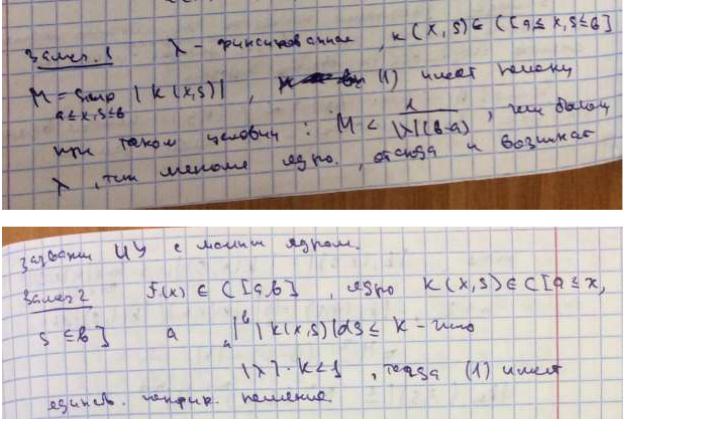 Замеч. 1 λ - фиксированная, K(x,s) ∈ C[a≤x,s≤b]
M = sup |K(x,s)|, (1) имеет
a≤x,s≤b
при таком условии: M < 1/(|λ|(b-a)), чем больше
λ, тем меньше ядро, отсюда и возникает
название ИУ с малым ядром.
Замеч 2 f(x) ∈ C[a,b], ядро K(x,s) ∈ C[a≤x,
s≤b] а ₐ∫ᵇ|K(x,s)|ds ≤ K -
|λ|·K<1, тогда (1) имеет
единств. непрер. решение